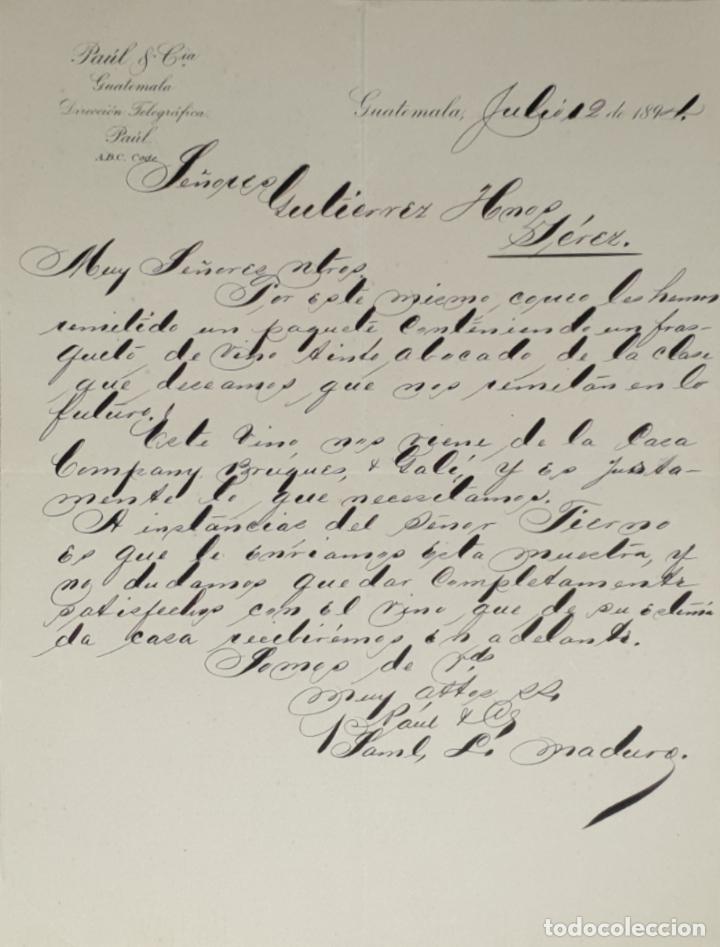 Paúl & Cía
Guatemala
Dirección Telegráfica
Paúl
A.B.C. Code
Guatemala, Julio 12 de 1894.
Señores
Gutierrez Hnos
Jérez.
Muy Señores ntros,
Por este mismo correo les hemos
remitido un paquete conteniendo un fras-
queto de vino tinto abocado de la clase
que deceamos que nos remitan en lo
futuro.
Este vino nos viene de la casa
Company Bruques, & Galí, y es justa-
mente lo que necesitamos.
A instancias del Señor Tierno
es que le enviamos esta muestra, y
no dudamos quedar completamente
satisfechos con el vino que de su estima
da casa recibirémos en adelante.
Somos de Vds
muy attos SS.
Paúl & Ca
Saml, L. Maduro.
todocoleccion